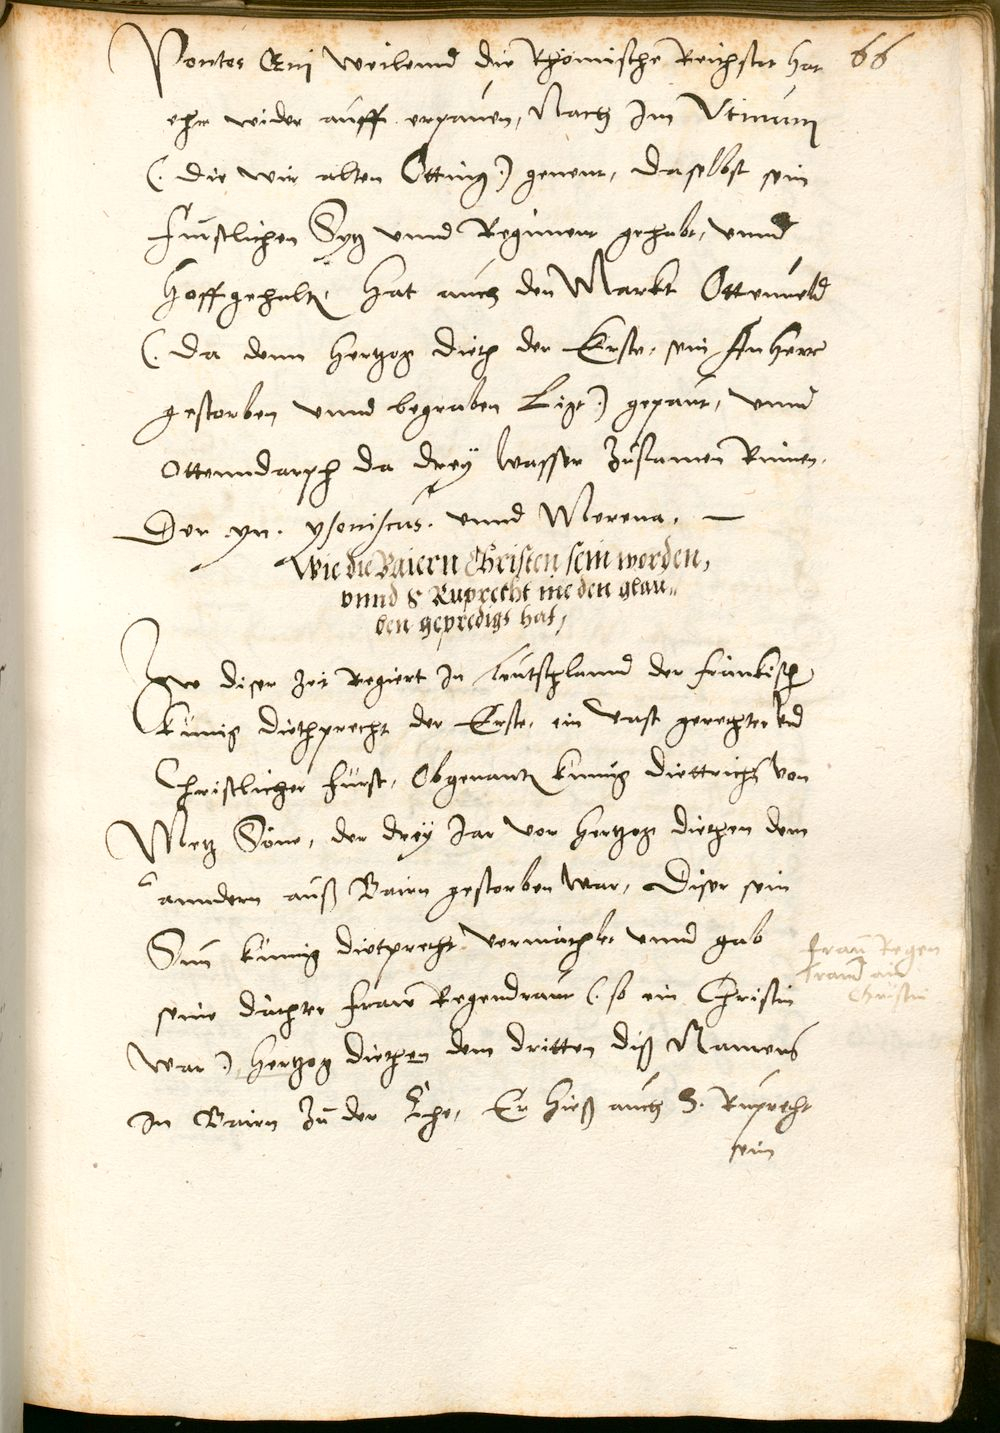 66
Pontes Œni weilennd die Rhömische Reichstat hat
ehr wider auff erpauen, Nach Im Vtinum
(. die wir alten Otting .) genent, daselbst sein
Furstlichen Sytz vnnd Regiment gehabt, vnnd
Hoff gehaltn, Hat auch den Markt Ottenueld
(. da denn Hertzog dieth der Erste, sein Anherr
gestorben vnnd begraben Ligt .) gepaut, vnnd
Ottenndarph da dreÿ wasser Zusamen Rinnen.
Der yn. ysoniscus. vnnd Morena. —
Wie die Baiern Christen sein worden,
vnnd S Ruprecht ine den glau=
ben gepredigt hat,
Zw diser zeit Regiert In teutschlannd der frankisch
kunig diethprecht der Erste, ein vast gerechter vnd
Christlicher fürst, Obgenantz kunig diettrichs von
Metz Sone, der dreÿ Jar vor Hertzog diethen dem
anndern auß Bairn gestorben war, Diser sein
Sun kunig dietprecht vermächlt vnnd gab
seine dochter fraw Regendraut (. so ein Christin
war .) Hertzog diethen dem dritten diß Namens
In Bairn zu der Ehe, Er hieß auch S. Ruprecht
sein
fraw Regen
traud ain
Christin